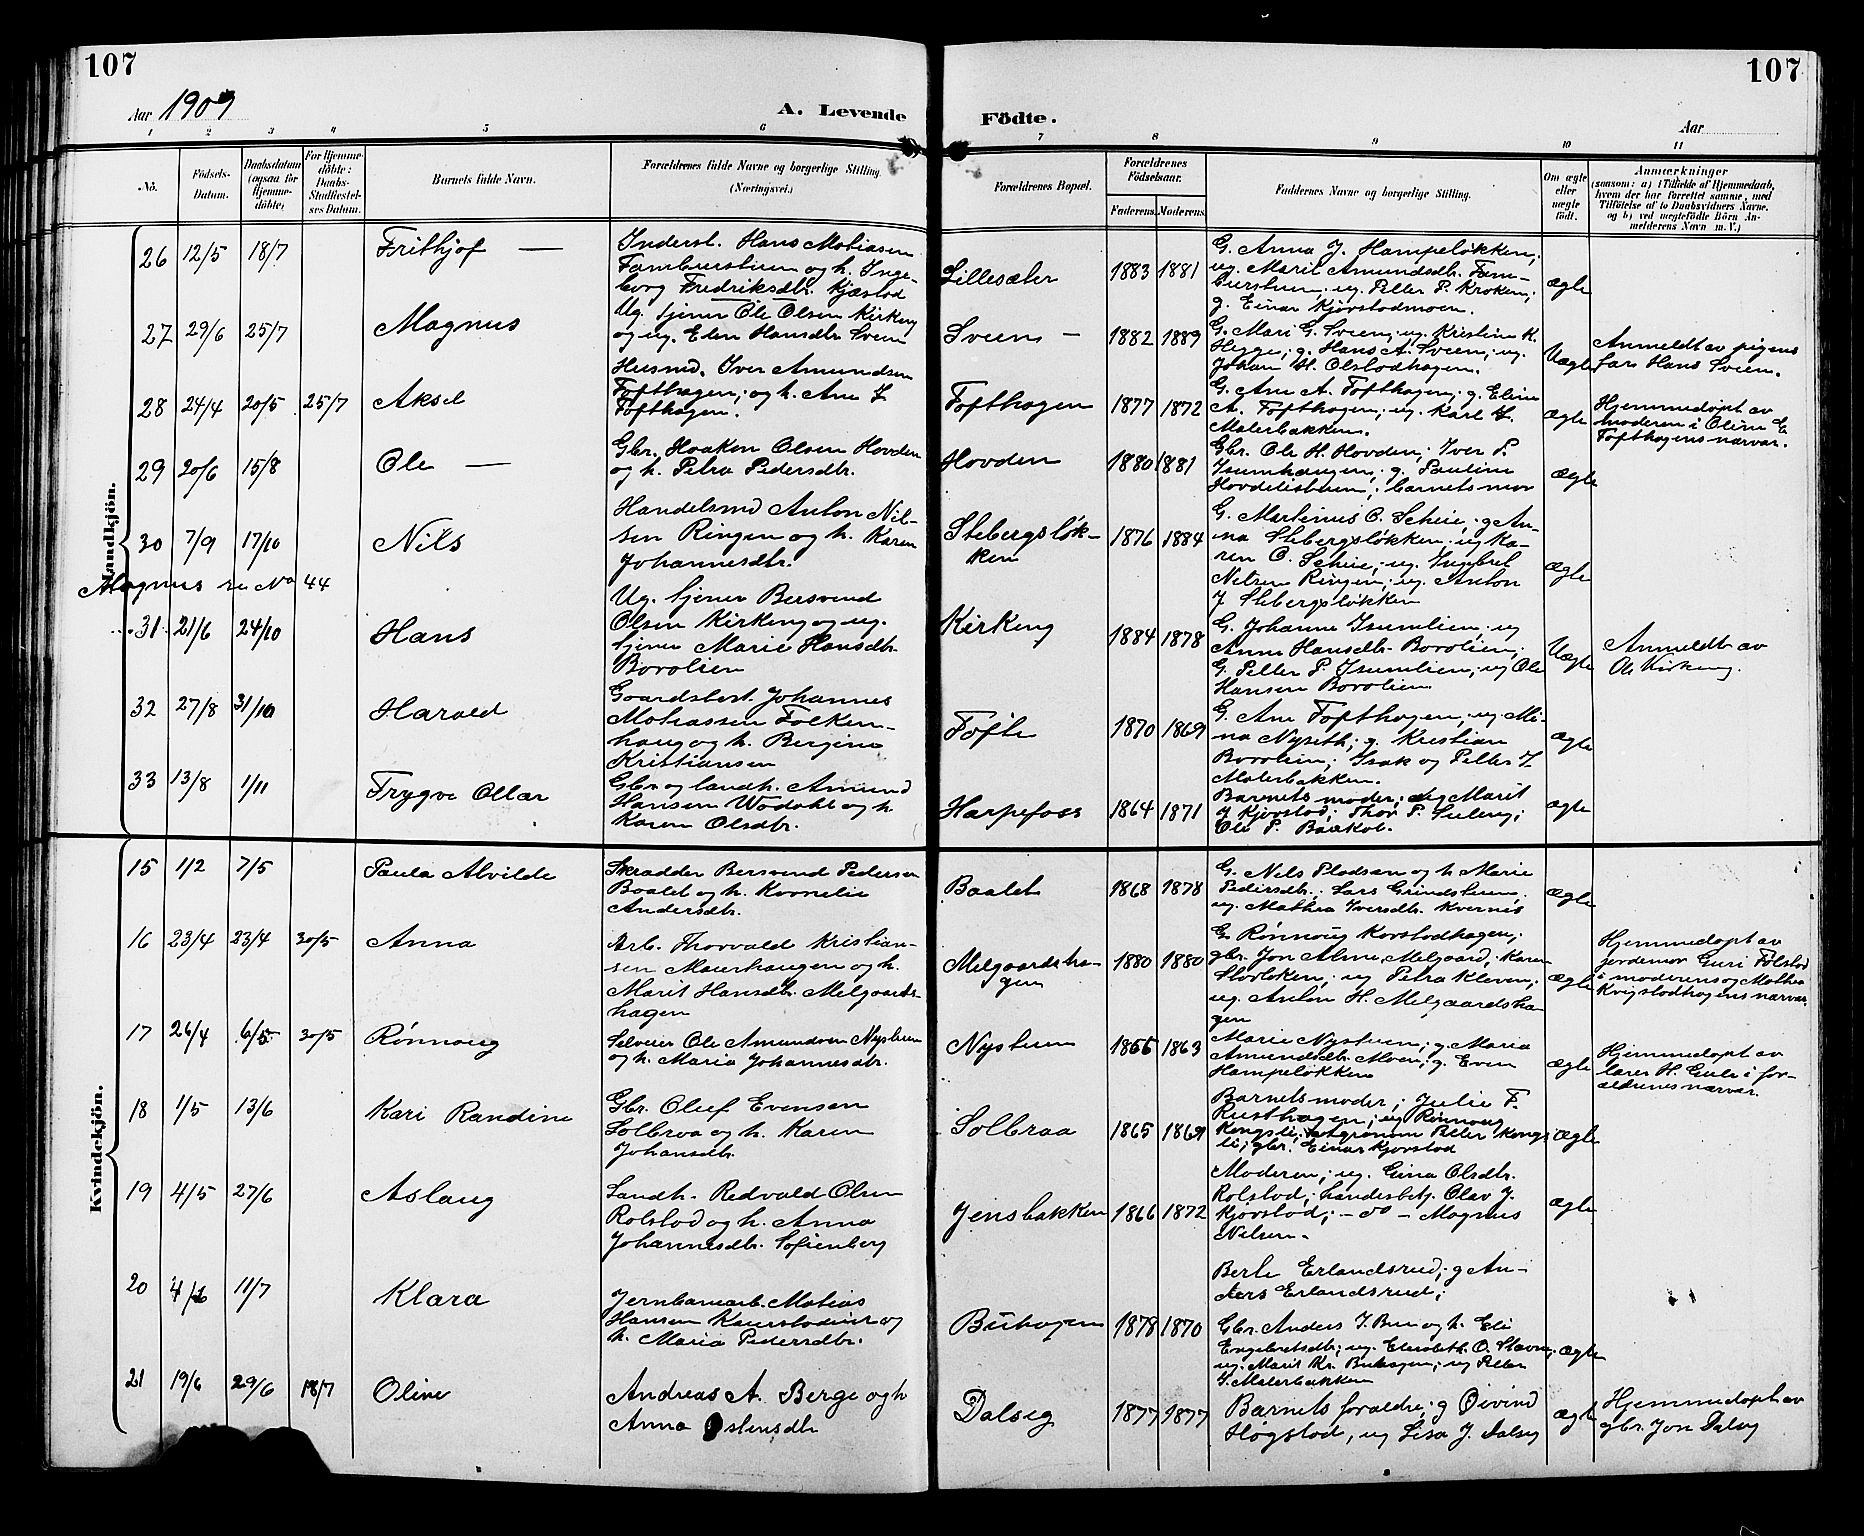 107
107
Aar 1909
A. Levende
Födte.
Aar
1 2 3 4 5 6 7 8 9 10 11
No.
Födsels-
Datum.
Daabsdatum
(ogsaa for
Hjemme-
döbte)
For Hjemme-
döbte:
Daabs-
Stadfæstel-
ses Datum.
Barnets fulde Navn.
Forældrenes fulde Navne og borgerlige Stilling.
(Næringsvei.)
Forældrenes Bopæl.
Forældrenes
Födselsaar.
Faderens. Moderens.
Faddernes Navne og borgerlige Stilling.
Om ægte
eller
uægte
födt.
Anmærkninger
(saasom: a) i Tilfælde af Hjemmedaab,
hvem der har forrettet samme, med
Tilföielse af to Daabsvidners Navne.
og b) ved uægtefödte Börn An-
melderens Navn m. V.)
Mandkjön.
26 12/5 18/7
Frithjof —
Inderst. Hans Matiasen
Tamburstuen og h. Inge-
borg Fredriksdtr. Kjæstad
Lillesæter
1883 1881
G. Anna J. Hampeløkken;
ug. Marit Amundsdtr. Tam-
burstuen; ug. Petter P. Kroken;
g. Einar Kjørstadmoen.
ægte
27 29/6 25/7
Magnus
Ug. tjener Ole Olsen Kirkeng
og ug. Elen Hansdtr. Sveen
Sveen —
1882 1889
G. Mari G. Sveen; ug. Kristine K.
Hegge; g. Hans A. Sveen; ug.
Johan H. Olstadhagen.
Uægte
Anmeldt av pigens
far Hans Sveen.
28 24/4 20/5 25/7
Aksel
Husmd. Iver Amundsen
Tofthagen; og h. Ane I.
Tofthagen.
Tofthagen
1877 1872
G. Ane A. Tofthagen; g. Eline
A. Tofthagen; ug. Karl I.
Materbakken.
ægte
Hjemmedøpt av
moderen i Oline E.
Tofthagens nærvær.
29 20/6 15/8
Ole —
Gbr. Haaken Olsen Hovden
og h. Petra Pedersdtr.
Hovden
1880 1881
Gbr. Ole H. Hovden; Iver P.
Isumhaugen; g. Pauline
Hovdelistuen; barnets mor
ægte
30 7/9 17/10
Nils
Handelsmd Anton Nil-
sen Ringen og h. Karen
Johannesdtr.
Stebergsløk-
ken
1876 1884
G. Martinius O. Scheie; g An-
na Stebergsløkken; ug Ka-
ren O. Scheie; ug. Ingebret
Nilsen Ringen; ug. Anton
J. Stebergsløkken
ægte
Magnus se No 44
31 21/6 24/10
Hans
Ug. tjener Bersvend
Olsen Kirkeng og ug.
tjener Marie Hansdtr.
Borolien
Kirkeng
1884 1878
G. Johanne Isumlien; ug
Anne Hansdtr. Borolien;
G. Petter P. Isumlien; ug Ole
Hansen Borolien
Uægte
Anmeldt av
Ole Kirkeng.
32 27/8 31/10
Harald
Gaardsbest. Johannes
Matiassen Folken-
haug og h. Bergine
Kristiansen
Tofte
1870 1869
G. Ane Tofthagen; ug. Mi-
na Nyseth; g. Kristian
Borolien; Isak og Petter I.
Materbakken.
ægte
33 13/8 1/11
Trygve Ottar
Gbr og landh. Amund
Hansen Wødahl og h.
Karen Olsdtr.
Harpefoss
1864 1871
Barnets moder; ug Marit
J Kjørstad; Thor P. Suleng;
Ole P. Baukol.
ægte
Kvindekjön.
15 1/2 7/5
Paula Alvilde
Skrædder Bersvend Pedersen
Baalet og h. Kornelie
Andersdtr.
Baalet
1868 1878
G. Nels Pladsen og h Marie
Pedersdtr.; Lars Grindstuen;
ug. Mathea Iversdtr. Kvernes
ægte
16 23/4 23/4 30/5
Anna
Arb. Thorvald Kristian-
sen Maurhaugen og h.
Marit Hansdtr. Melgaards-
hagen
Melgaardsha-
gen
1880 1880
G. Rønnoug Korstadhagen;
gbr. Jon Alme, Melgaard; Karen
Storløken; ug Petra Kleven;
ug. Anton H. Melgaardsha-
gen
ægte
Hjemmedøpt av
jordemor Guri Følstad
i moderens og Mathea
Kvistadhagens nærvær.
17 26/4 6/5 30/5
Rønnoug
Selveier Ole Amundsen Nystuen
og h. Maria Johannesdtr.
Nystuen
1866 1863
Marie Nystuen; g Maria
Amundsdtr. Moen; g. Even
Hampeløkken
ægte
Hjemmedøpt av
lærer H. Gule i for-
ældrenes nærvær.
18 1/5 13/6
Kari Randine
Gbr. Oluf Evensen
Solbraa og h. Karen
Johansdtr.
Solbraa
1865 1869
Barnets moder; Julie F.
Rusthagen; ug Rønnoug
Kongsli; agronom Petter Kongs-
li; gbr. Einar Kjørstad
ægte
19 4/5 27/6
Aslaug
Landh. Redvald Olsen
Rolstad og h. Anna
Johannesdtr. Sofienberg
Jensbakken
1866 1872
Moderen; ug. Gina Olsdtr.
Rolstad; handelsbetj. Olav J.
Kjørstad; — do — Magnus
Nilsen.
ægte
20 4/6 11/7
Klara
Jernbanearb. Matias
Hansen og
h. Maria Pedersdtr.
Buhagen
1878 1870
Berte Erlandsrud; g An-
ders Erlandsrud;
Gbr. Anders I. Bu og h. Eli
Engebretsdtr; ug. Elisabeth O. Stavn;
ug. Marit Kr. Buhagen; ug Petter
I. Materbakken
ægte
21 19/6 29/6 18/7
Oline
Andreas A. Berge og h
Anna Østensdtr
Dalseg
1877 1877
Barnets forældre; g Øivind
Høgstad, ug Lisa J. Dalseg
ægte
Hjemmedøpt av
gbr. Jon Dalseg